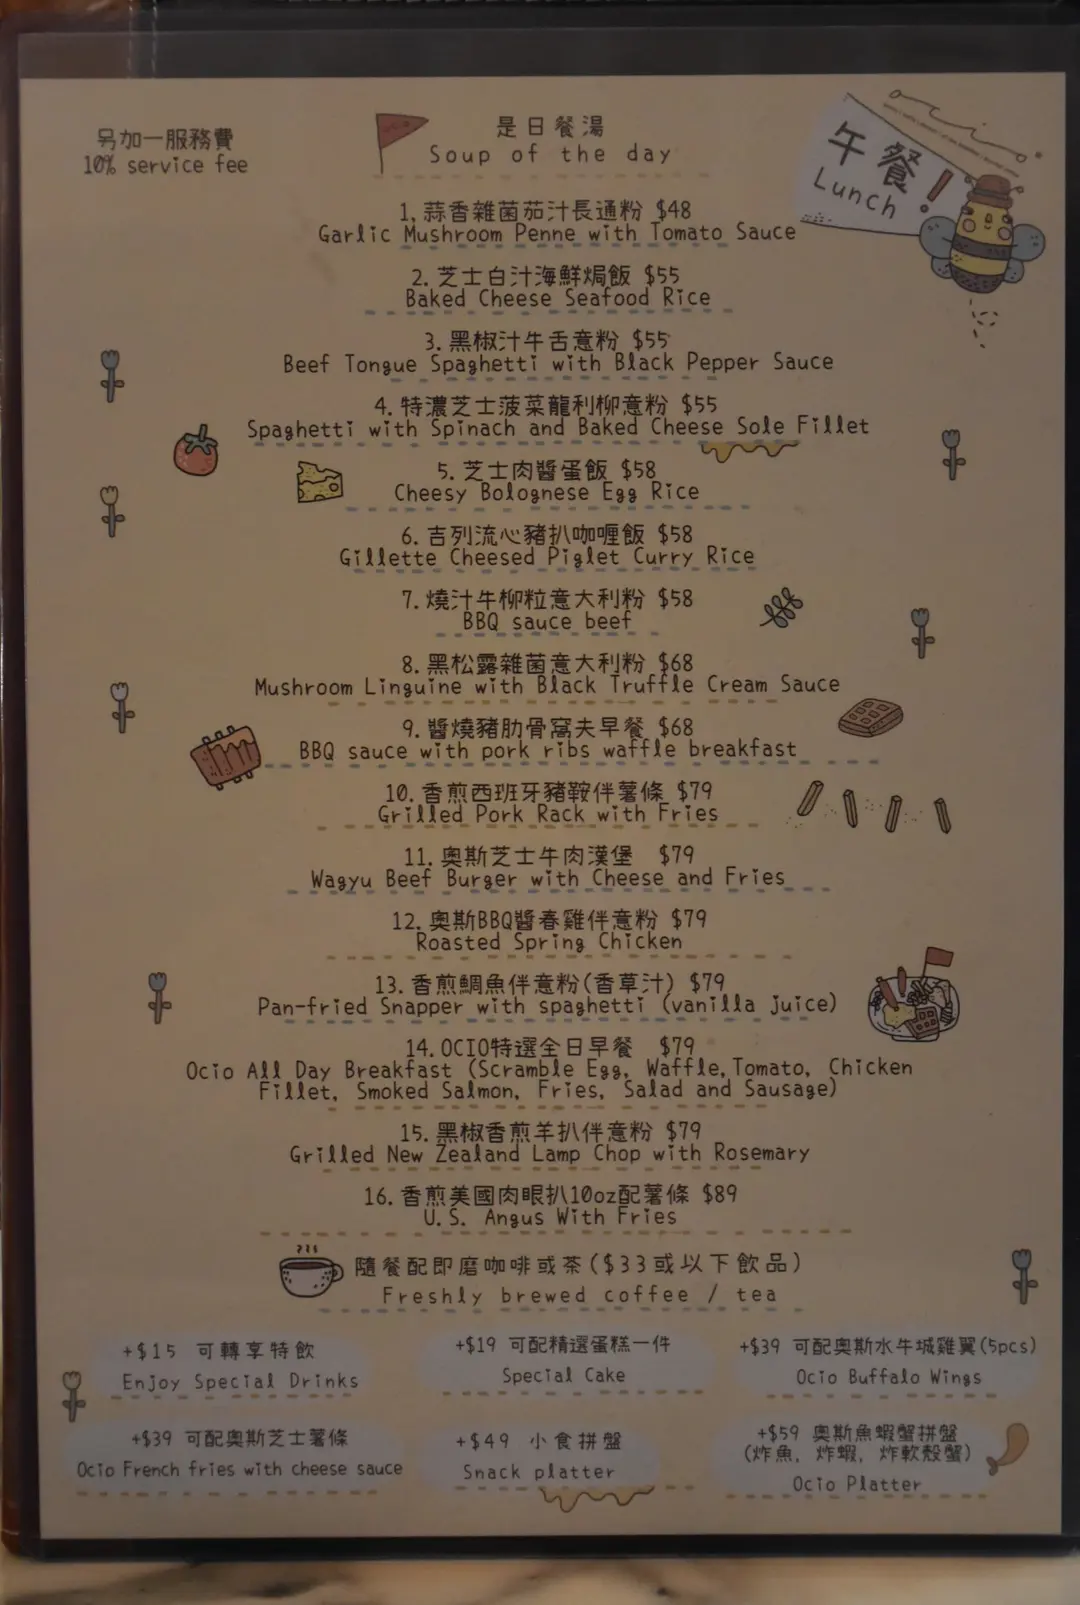 另加一服務費
10% service fee
是日餐湯
Soup of the day
午餐!
Lunch
1. 蒜香雜菌茄汁長通粉 $48
Garlic Mushroom Penne with Tomato Sauce
2. 芝士白汁海鮮焗飯 $55
Baked Cheese Seafood Rice
3. 黑椒汁牛舌意粉 $55
Beef Tongue Spaghetti with Black Pepper Sauce
4. 特濃芝士菠菜龍利柳意粉 $55
Spaghetti with Spinach and Baked Cheese Sole Fillet
5. 芝士肉醬蛋飯 $58
Cheesy Bolognese Egg Rice
6. 吉列流心豬扒咖喱飯 $58
Gillette Cheesed Piglet Curry Rice
7. 燒汁牛柳粒意大利粉 $58
BBQ sauce beef
8. 黑松露雜菌意大利粉 $68
Mushroom Linguine with Black Truffle Cream Sauce
9. 醬燒豬肋骨窩夫早餐 $68
BBQ sauce with pork ribs waffle breakfast
10. 香煎西班牙豬鞍伴薯條 $79
Grilled Pork Rack with Fries
11. 奧斯芝士牛肉漢堡 $79
Wagyu Beef Burger with Cheese and Fries
12. 奧斯BBQ醬春雞伴意粉 $79
Roasted Spring Chicken
13. 香煎鯛魚伴意粉(香草汁) $79
Pan-fried Snapper with spaghetti (vanilla juice)
14. OCIO特選全日早餐 $79
Ocio All Day Breakfast (Scramble Egg, Waffle, Tomato, Chicken
Fillet, Smoked Salmon, Fries, Salad and Sausage)
15. 黑椒香煎羊扒伴意粉 $79
Grilled New Zealand Lamp Chop with Rosemary
16. 香煎美國肉眼扒10oz配薯條 $89
U.S. Angus With Fries
隨餐配即磨咖啡或茶($33或以下飲品)
Freshly brewed coffee / tea
+$15 可轉享特飲
Enjoy Special Drinks
+$19 可配精選蛋糕一件
Special Cake
+$39 可配奧斯水牛城雞翼(5pcs)
Ocio Buffalo Wings
+$39 可配奧斯芝士薯條
Ocio French fries with cheese sauce
+$49 小食拼盤
Snack platter
+$59 奧斯魚蝦蟹拼盤
(炸魚, 炸蝦, 炸軟殼蟹)
Ocio Platter